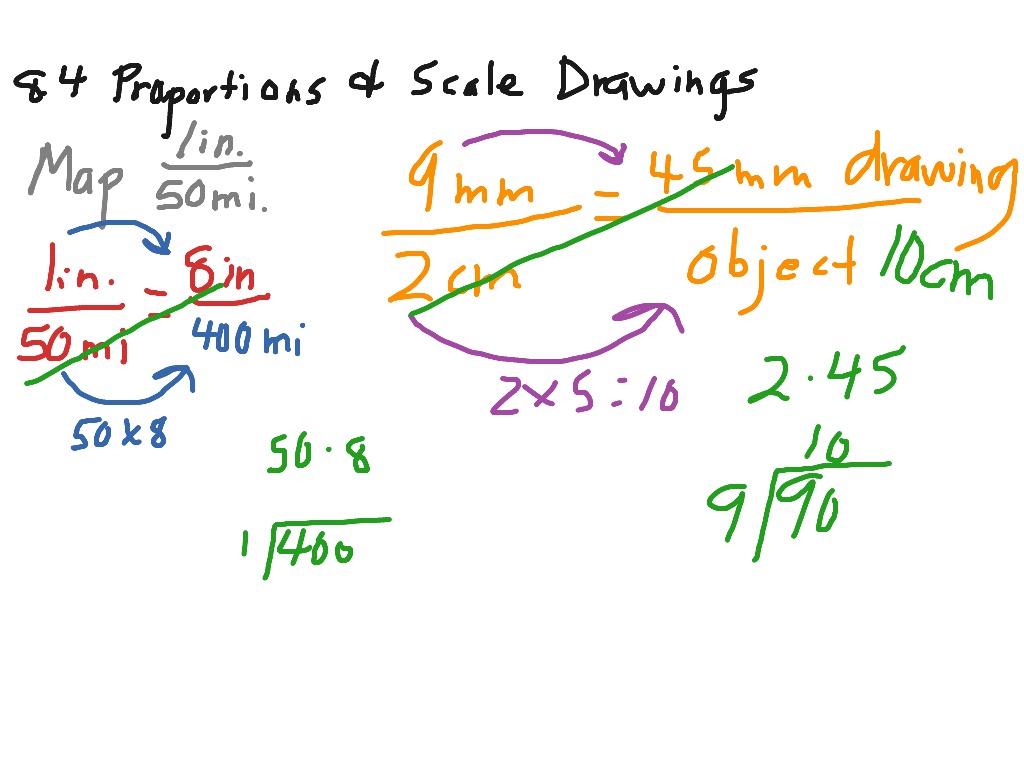 84 Proportions & Scale Drawings
Map 1in.
50mi.
1in. = 8in
50mi 400mi
50x8
50·8
1 400
9mm = 45mm drawing
2cm object 10cm
2x5=10
2·45
10
9 90